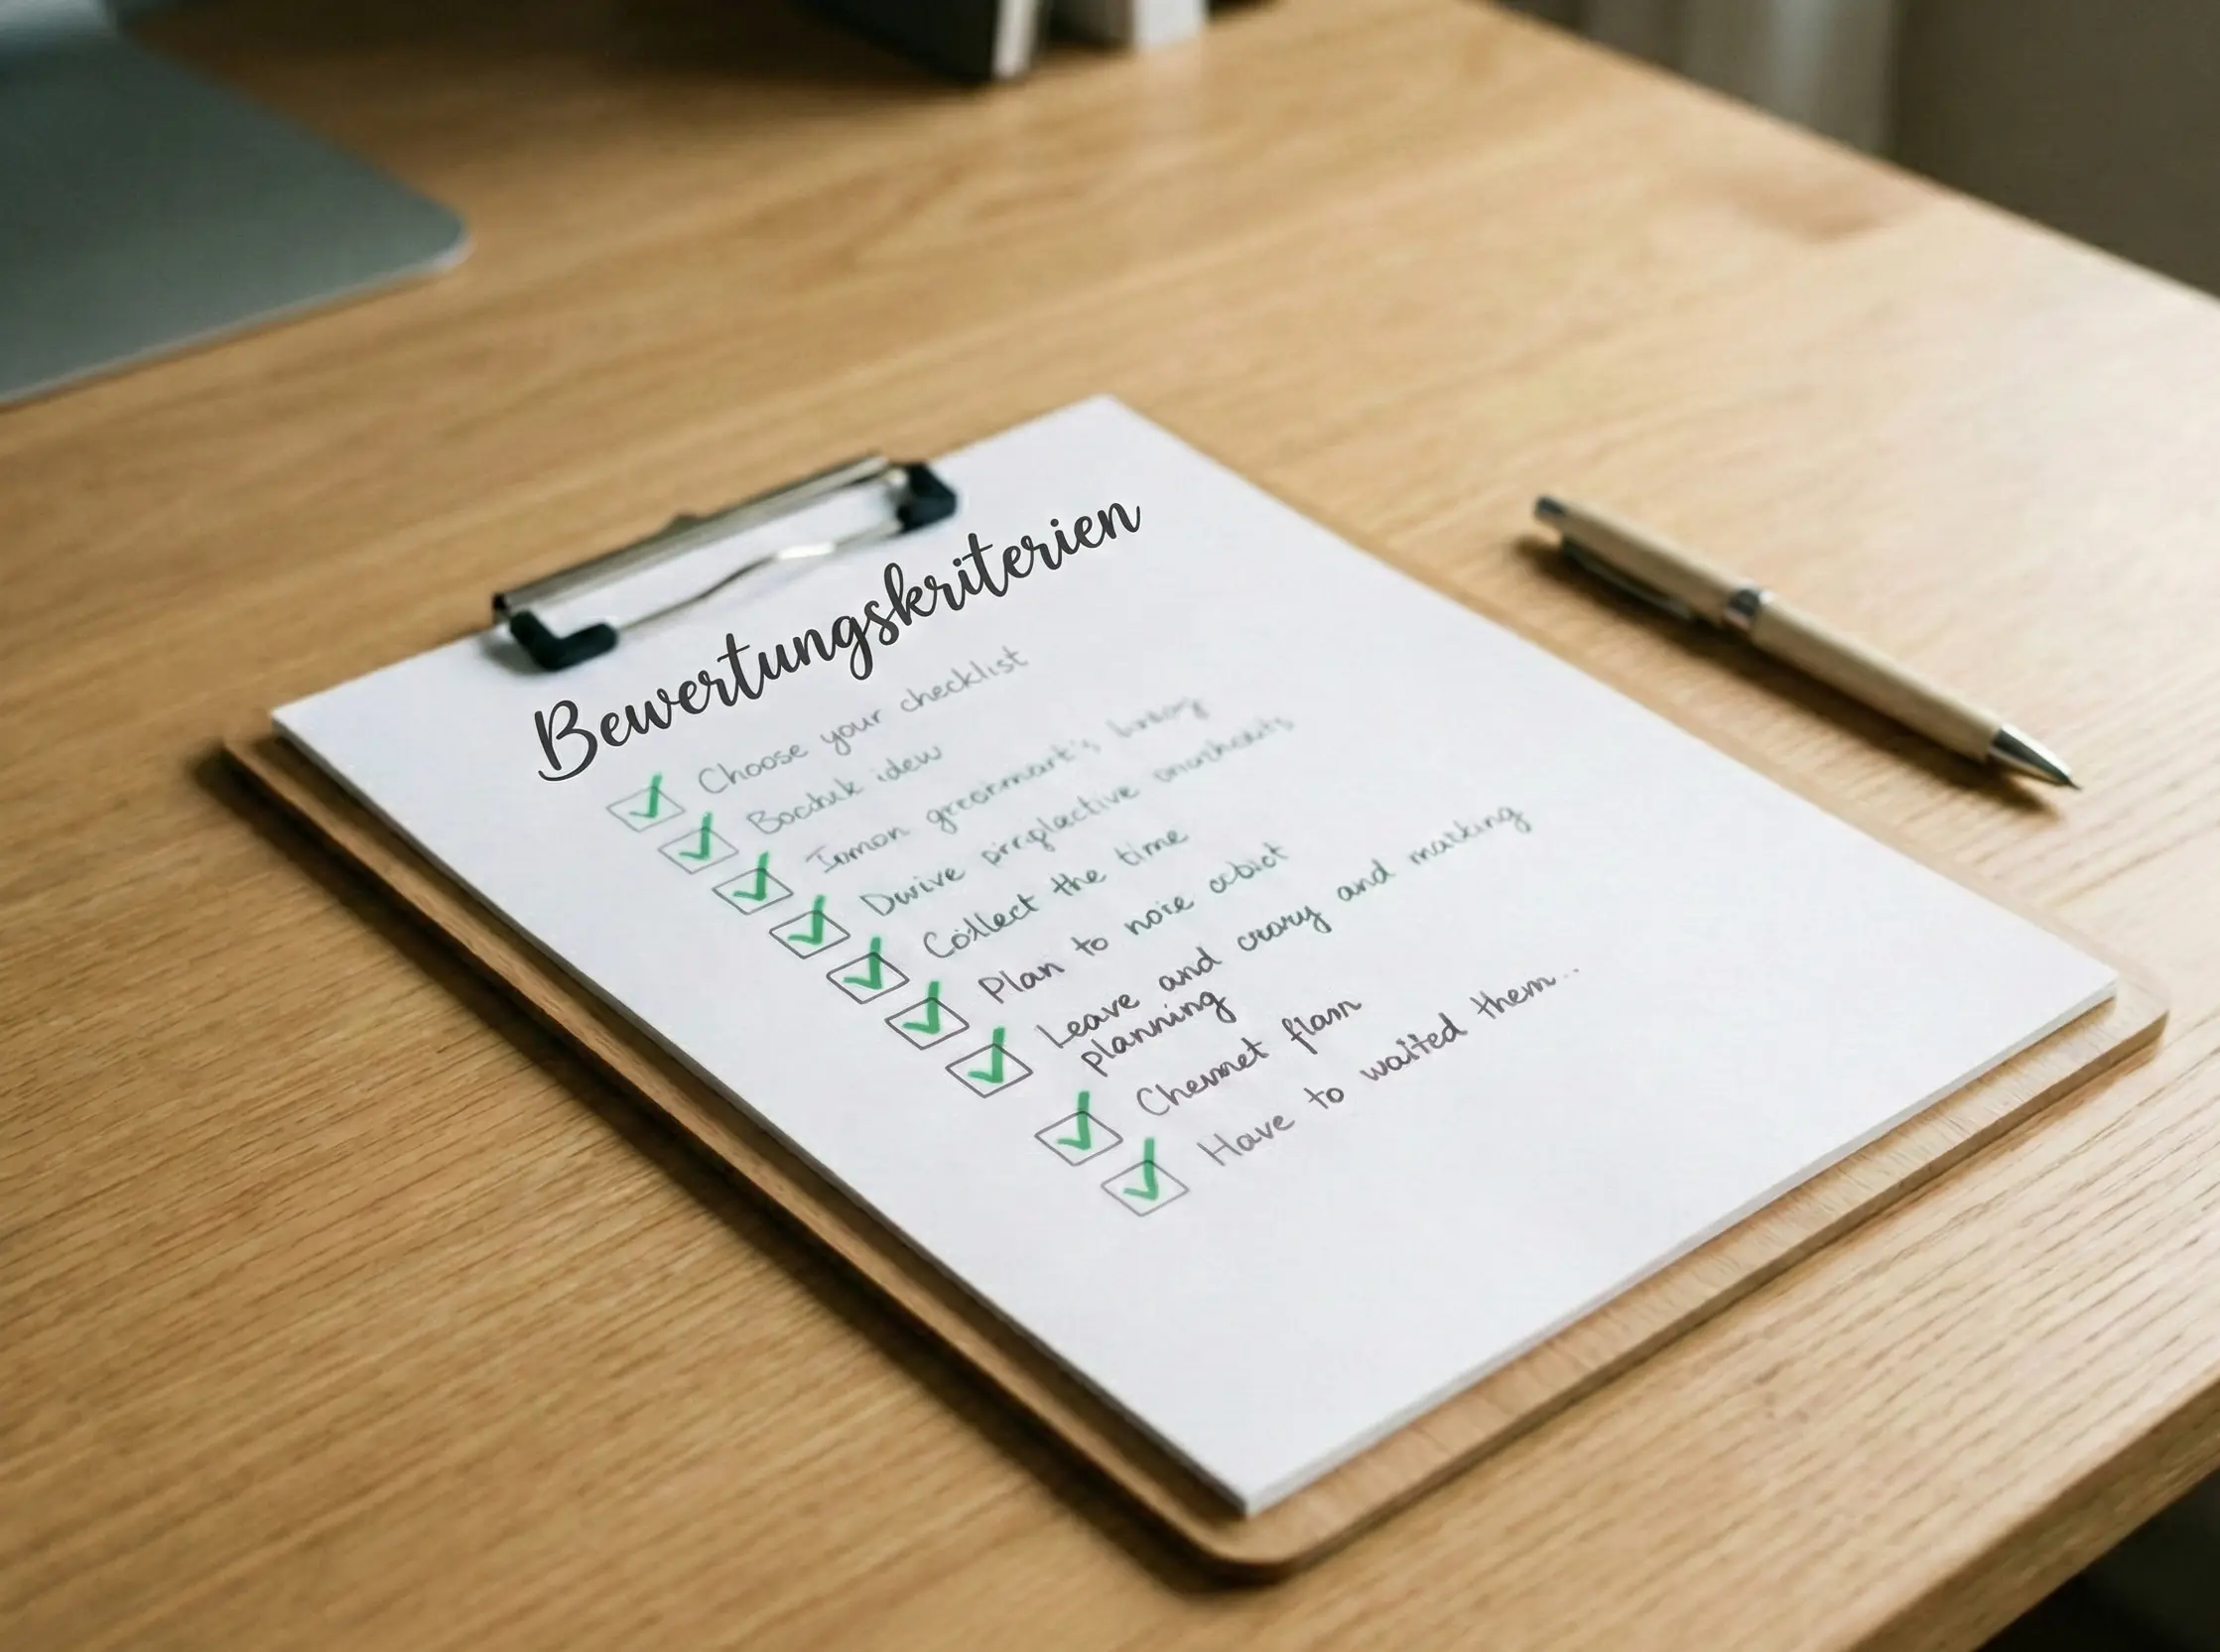 Bewertungskriterien
Choose your checklist
Bochuk idew
Inmon greonmart's
Dwive pirrplactive
Collect the time
Plan to noie
Leave and crary and marking
planning
Chemnet flann
Have to waited them..